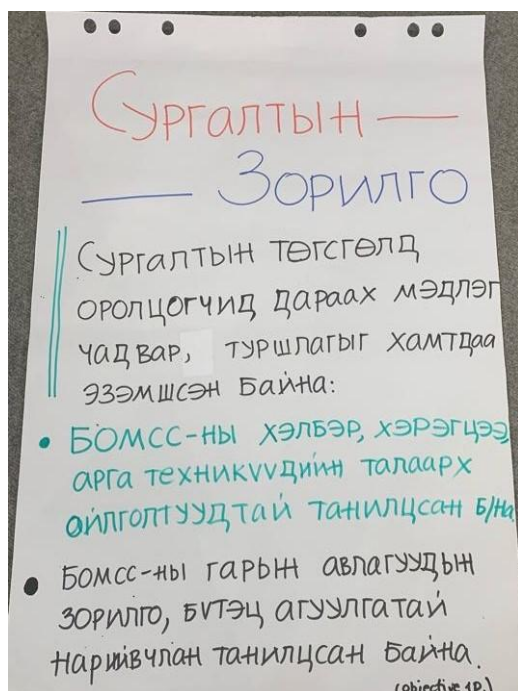 Сургалтын —
— Зорилго
Сургалтын төгсгөлд
оролцогчид дараах мэдлэг
чадвар, туршлагыг хамтдаа
эзэмшсэн байна:
• БОМСС-ны хэлбэр, хэрэгцээ,
арга техникүүдийн талаарх
ойлголтуудтай танилцсан б/на
• БОМСС-ны гарын авлагуудын
зорилго, бүтэц агуулгатай
нарийвчлан танилцсан байна.
(objective 1D.)